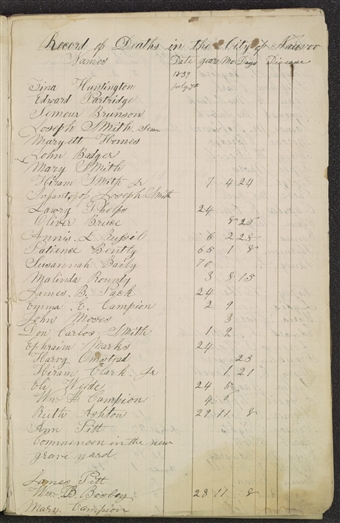 Record of Deaths in the City of Nauvoo
Names Date years Mo Days Disease
1839
Zina Huntington July 8th
Edward Partridge
Semour Brunson
Joseph Smith Sen
Maryett Homes
John Badger
Mary Smith
Hiram Smith Jr 7 4 24
Infant of Joseph Smith
Laura Phelps 24
Oliver 8
Annis L. 6 2 28
Patience 65 1 8
Susannah 70
Malinda 3 8 15
James B. 24
Emma E. Campion 2 9
John Moses 3
Don Carlos Smith 1 2
Ephraim Marks 24
Harvy Omstead 23
Hiram Clark Jr 1 21
Ely 24 6
Wm Campion 9
Ruth Ashton 29 11 8
Ann Pitt
Commenson in the new
grave yard
James Pitt
Wm B. Bosley 23 11 8
Mary Campion